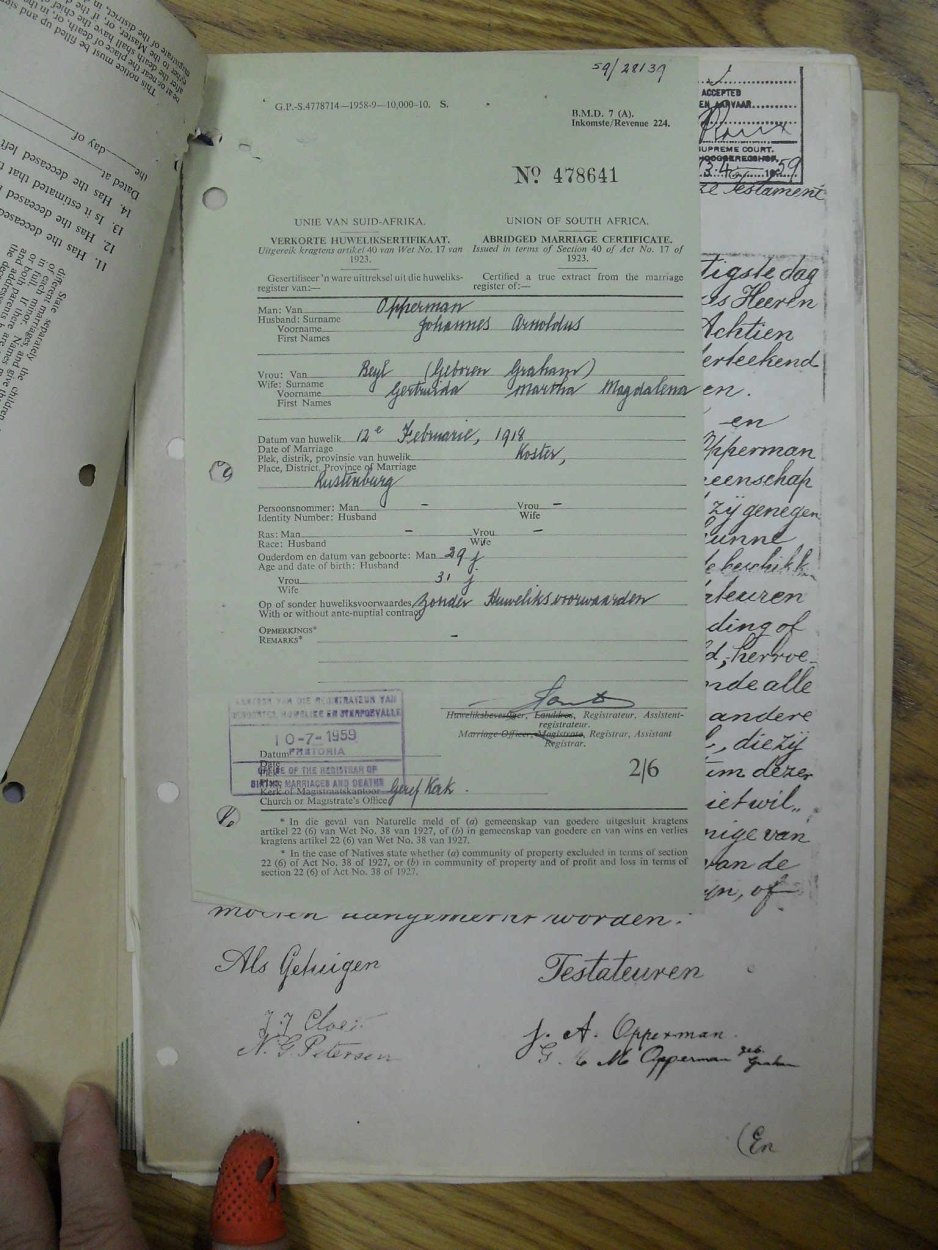 59/28139
G.P.-S.4778714—1958-9—10,000-10. S.
B.M.D. 7 (A).
Inkomste/Revenue 224.
No 478641
UNIE VAN SUID-AFRIKA.
VERKORTE HUWELIKSERTIFIKAAT.
Uitgereik kragtens artikel 40 van Wet No. 17 van
1923.
Gesertifiseer 'n ware uittreksel uit die huweliks-
register van:—
UNION OF SOUTH AFRICA.
ABRIDGED MARRIAGE CERTIFICATE.
Issued in terms of Section 40 of Act No. 17 of
1923.
Certified a true extract from the marriage
register of:—
Man: Van Opperman
Husband: Surname
Voorname Johannes Arnoldus
First Names
Vrou: Van Beyl (Geboren Graham)
Wife: Surname
Voorname Gertruida Martha Magdalena
First Names
Datum van huwelik 12e Februarie, 1918
Date of Marriage
Plek, distrik, provinsie van huwelik Koster,
Place, District, Province of Marriage
Rustenburg
Persoonsnommer: Man - Vrou -
Identity Number: Husband Wife
Ras: Man - Vrou -
Race: Husband Wife
Ouderdom en datum van geboorte: Man 29 j.
Age and date of birth: Husband
Vrou 31 j
Wife
Op of sonder huweliksvoorwaardes Zonder Huweliksvoorwaarden
With or without ante-nuptial contract
OPMERKINGS*
REMARKS* -
Huweliksbevestiger, Landdros, Registrateur, Assistent-
registrateur.
Marriage Officer, Magistrate, Registrar, Assistant
Registrar.
KANTOOR VAN DIE REGISTRATEUR VAN
GEBOORTES, HUWELIKE EN STERFGEVALLE
10-7-1959
PRETORIA
OFFICE OF THE REGISTRAR OF
BIRTHS MARRIAGES AND DEATHS
Datum
2/6
Kerk of Magistraatskantoor Geref Kerk.
Church or Magistrate's Office
* In die geval van Naturelle meld of (a) gemeenskap van goedere uitgesluit kragtens
artikel 22 (6) van Wet No. 38 van 1927, of (b) in gemeenskap van goedere en van wins en verlies
kragtens artikel 22 (6) van Wet No. 38 van 1927.
* In the case of Natives state whether (a) community of property excluded in terms of section
22 (6) of Act No. 38 of 1927, or (b) in community of property and of profit and loss in terms of
section 22 (6) of Act No. 38 of 1927.
ACCEPTED
EN AANVAAR
SUPREME COURT.
HOOGGEREGSHOF.
Testament
tigste dag
Heeren
Achtien
erteekend
en.
en
Opperman
eenschap
zij genegen
unne
te beschikk
ateuren
ding of
herroe-
nde alle
andere
die zij
um dezer
iet wil
nige van
van de
of
moeten aangemerkt worden.
Als Getuigen
N. G. Petersen
Testateuren
J. A. Opperman
G. M. M. Opperman geb.
Graham
(En
This notice must be filled up and
Dated at
the day of
14. Has the deceased left
13. Is it estimated that
12. Has the deceased
11. Has the deceased
State separately the children
different marriages, and give